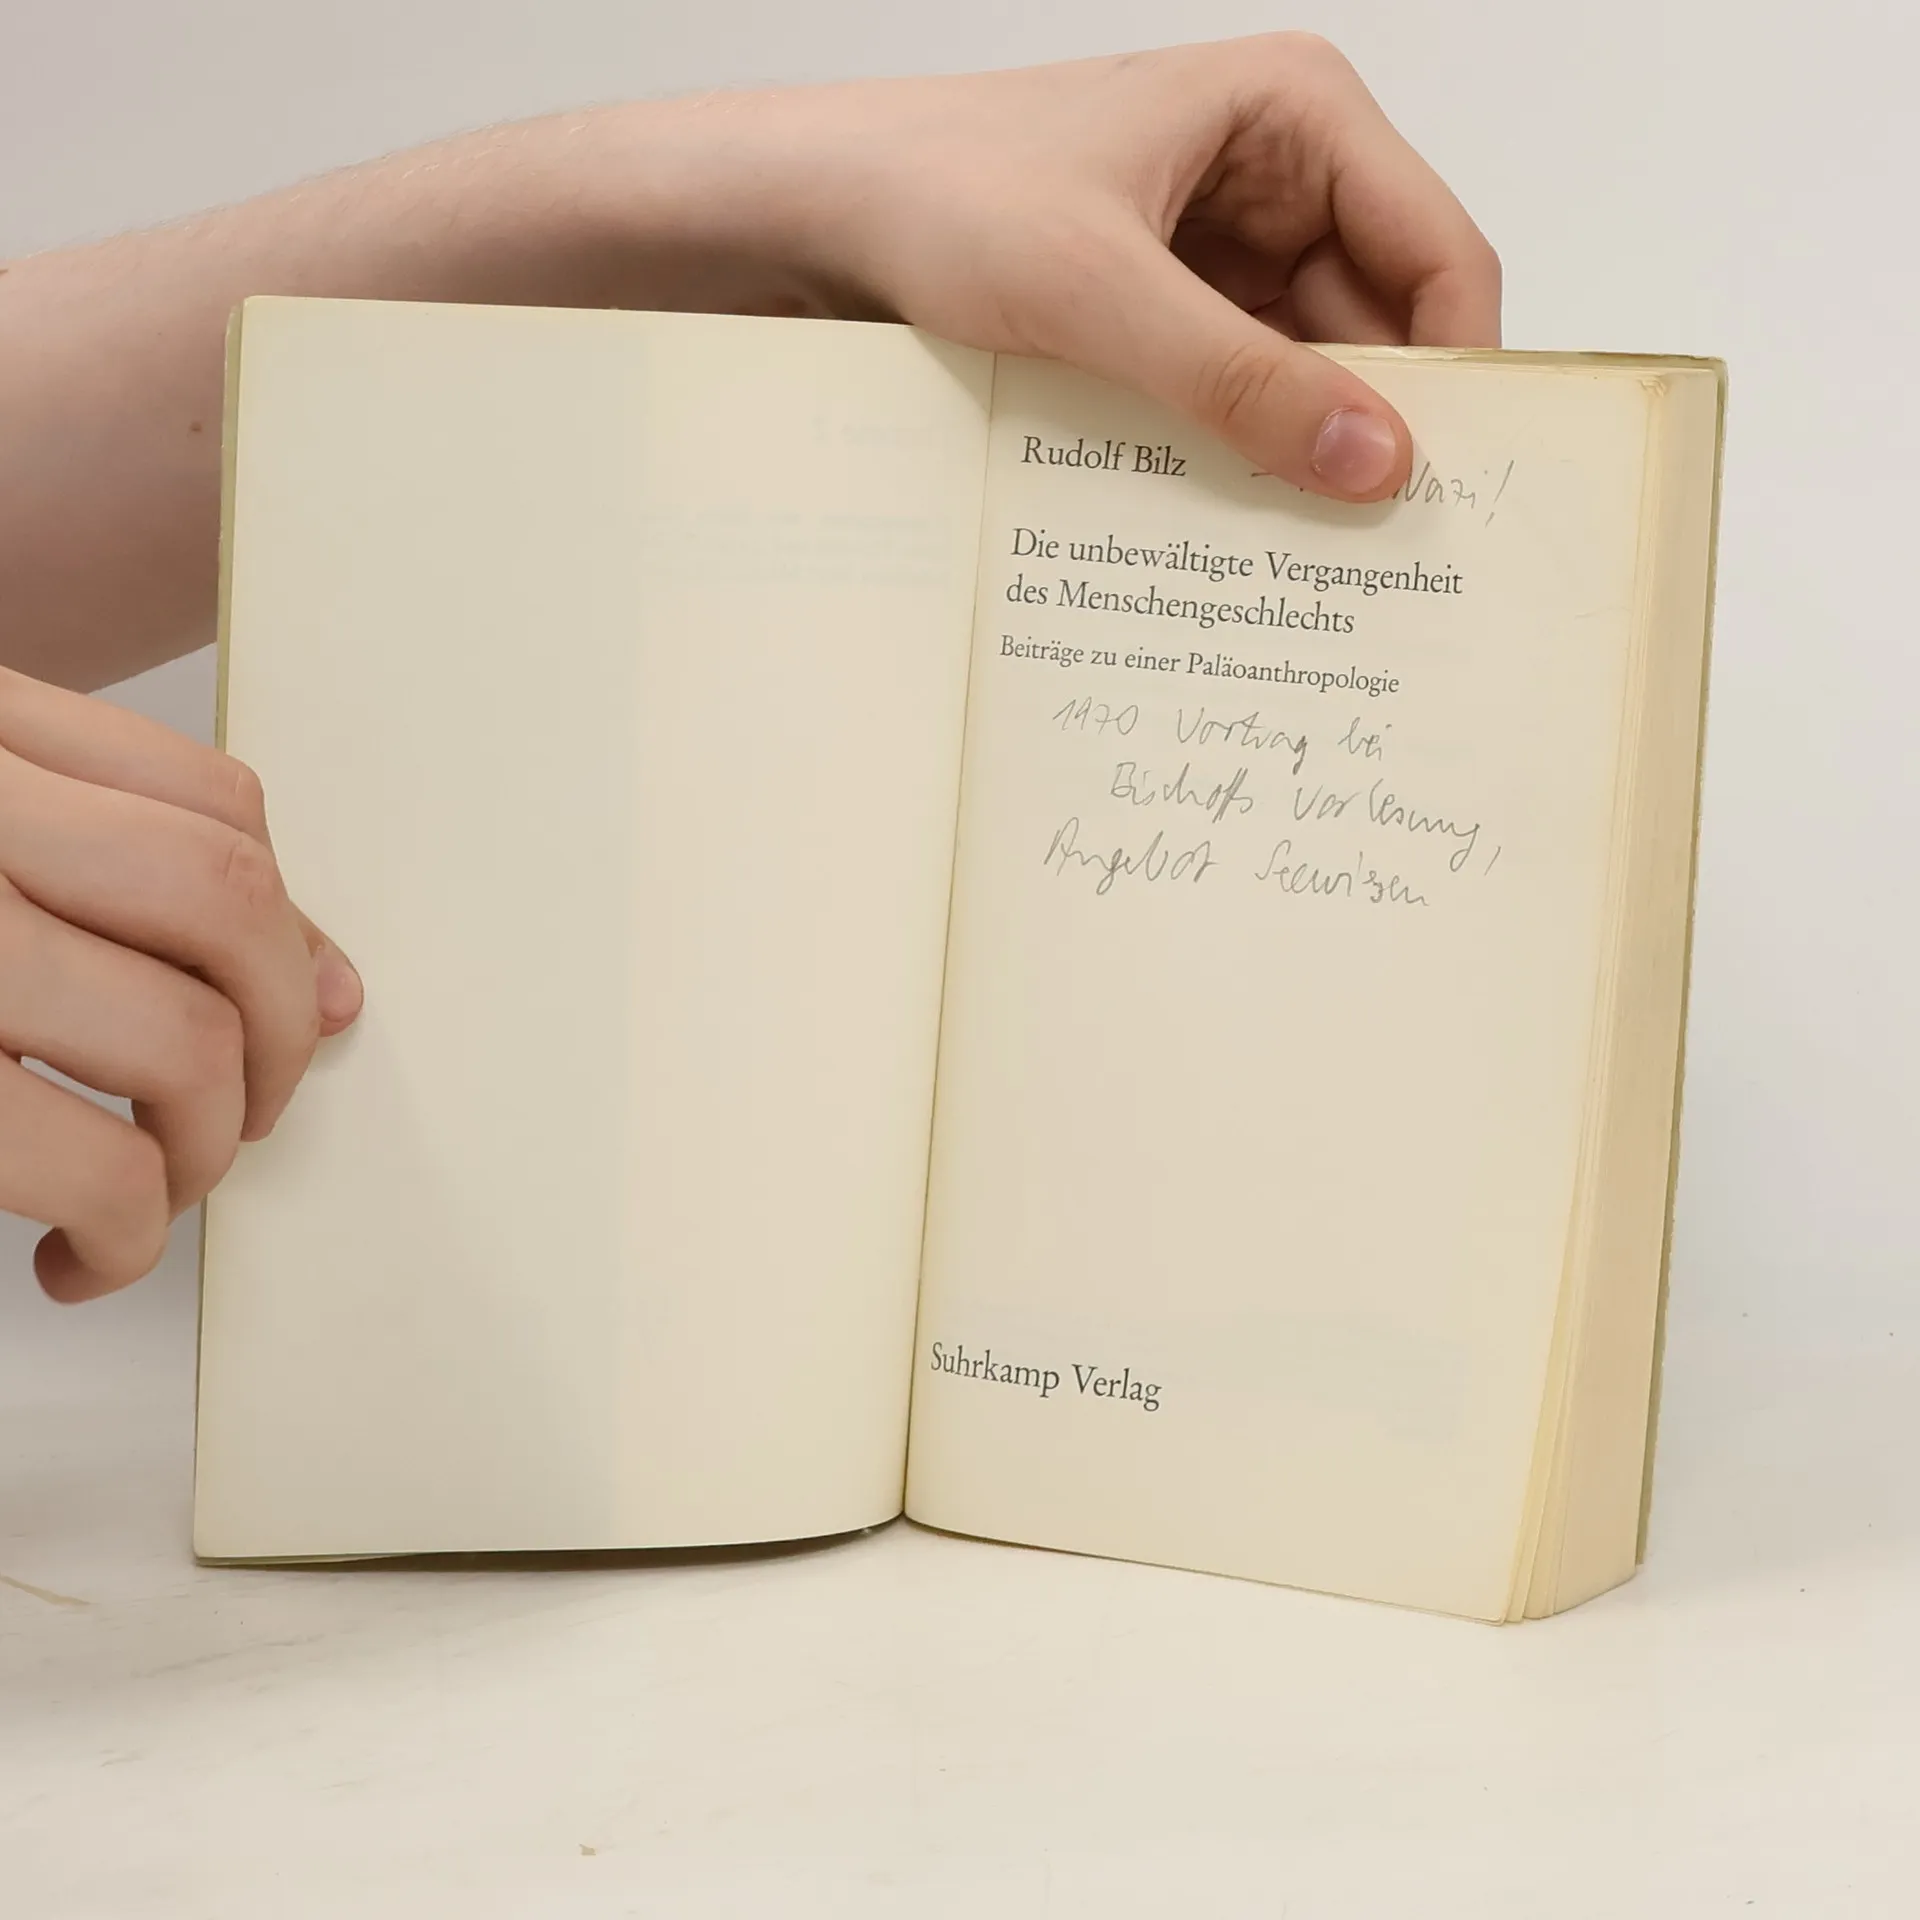 Rudolf Bilz – Nazi!
Die unbewältigte Vergangenheit
des Menschengeschlechts
Beiträge zu einer Paläoanthropologie
1970 Vortrag bei
Bischoffs Vorlesung,
Angebot Seewiesen
Suhrkamp Verlag